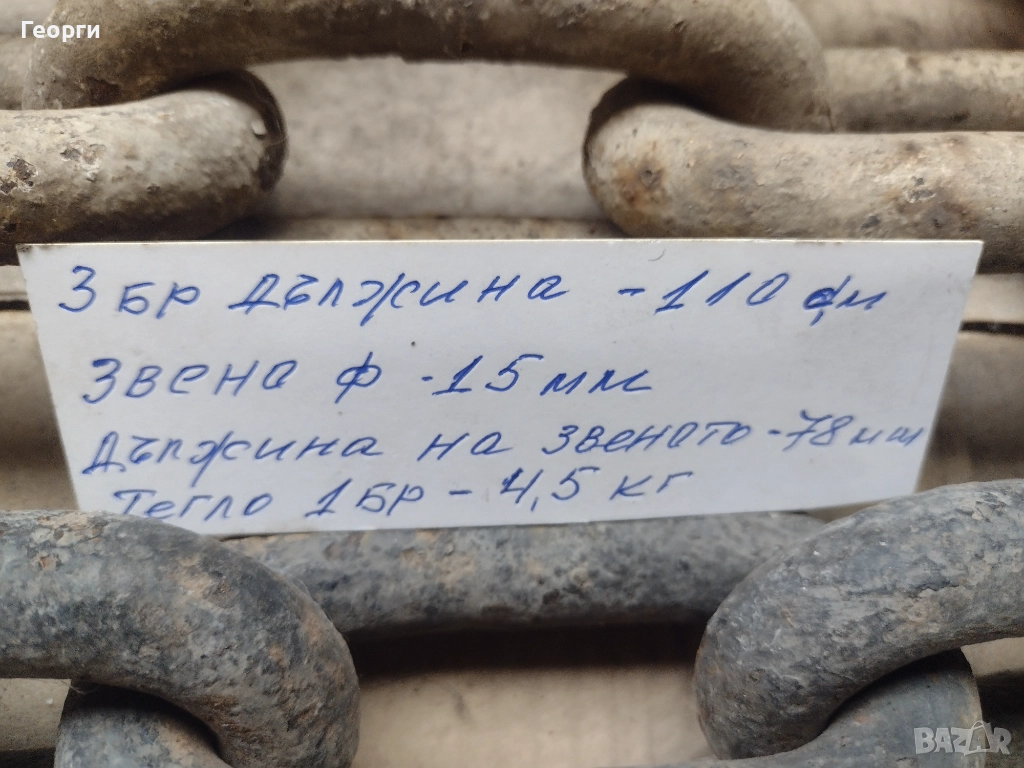 Георги
3 бр дължина - 110 см
Звена ф - 15 мм
Дължина на звеното - 78 мм
Тегло 1 бр - 4,5 кг
BAZAR